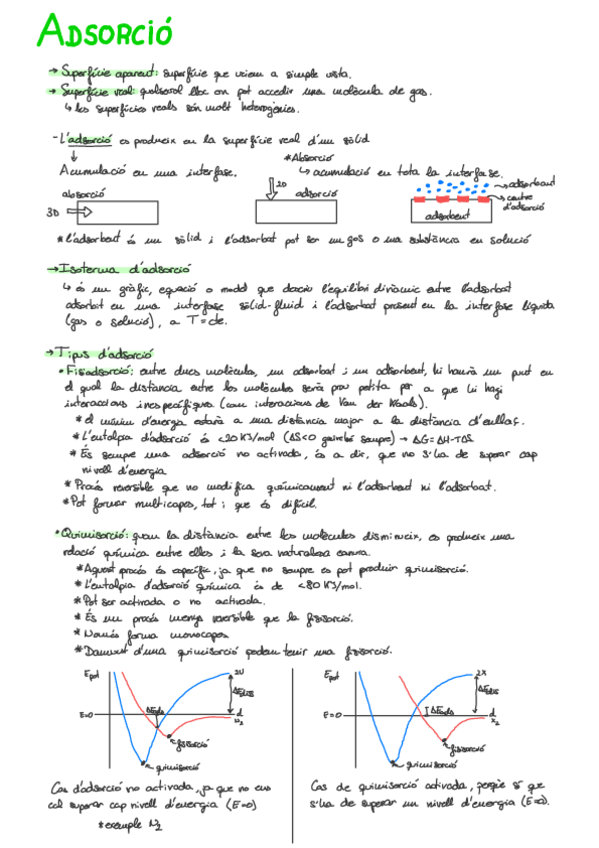 ADSORCIÓ
→ Superfície aparent: superfície que veiem a simple vista.
→ Superfície real: qualsevol lloc on pot accedir una molècula de gas.
↳ les superfícies reals són molt heterogènies.
- L'adsorció es produeix en la superfície real d'un sòlid
↓
*Absorció
Acumulació en una interfase.
↳ acumulació en tota la interfase.
absorció
3D
2D
adsorció
adsorbat
centre d'adsorció
adsorbent
* l'adsorbent és un sòlid i l'adsorbat pot ser un gas o una substància en solució
→ Isoterma d'adsorció
↳ és un gràfic, equació o model que descriu l'equilibri dinàmic entre l'adsorbat
adsorbit en una interfase sòlid-fluid i l'adsorbat present en la interfase líquida
(gas o solució), a T=cte.
→ Tipus d'adsorció
• Fisisorció: entre dues molècules, un adsorbat i un adsorbent, hi haurà un punt en
el qual la distància entre les molècules serà prou petita per a que hi hagi
interaccions inespecífiques (com interaccions de Van der Waals).
* el mínim d'energia estarà a una distància major a la distància d'enllaç.
* L'entalpia d'adsorció és <20 KJ/mol (ΔS<0 gairebé sempre) → ΔG=ΔH-TΔS
* És sempre una adsorció no activada, és a dir, que no s'ha de superar cap
nivell d'energia
* Procés reversible que no modifica químicament ni l'adsorbent ni l'adsorbat.
* Pot formar multicapes, tot i que és difícil.
• Quimisorció: quan la distància entre les molècules disminueix, es produeix una
relació química entre elles i la seva naturalesa canvia.
* Aquest procés és específic, ja que no sempre es pot produir quimisorció.
* L'entalpia d'adsorció química és de <80 KJ/mol.
* Pot ser activada o no activada.
* És un procés menys reversible que la fisisorció.
* Només forma monocapes
* Damunt d'una quimisorció podem tenir una fisisorció.
Epot
2N
ΔEdiss
ΔEads
E=0
d
N2
fisisorció
quimisorció
Cas d'adsorció no activada, ja que no ens
cal superar cap nivell d'energia (E=0)
*exemple N2
Epot
2X
ΔEdiss
ΔEads
E=0
d
X2
fisisorció
quimisorció
Cas de quimisorció activada, perquè sí que
s'ha de superar un nivell d'energia (E=0).